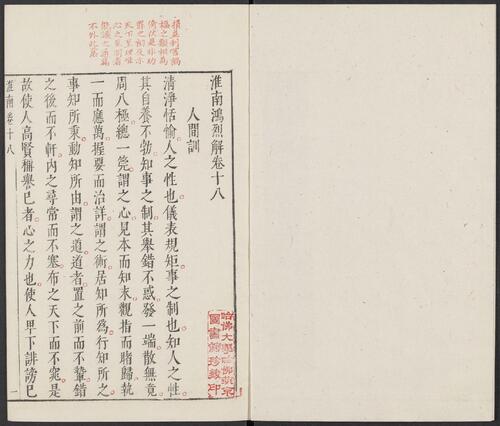 損益利害禍
淮南鴻烈解卷十八
人間訓
清淨恬愉人之性也儀表規矩事之制也知人之性
其自養不勃知事之制其舉錯不惑發一端散無竟
周八極總一筦謂之心見本而知末觀指而睹歸執
一而應萬握要而治詳謂之術居知所為行知所之
事知所秉動知所由謂之道道者置之前而不䡖錯
之後而不軒內之尋常而不塞布之天下而不窕是
故使人高賢稱譽已者心之力也使人卑下誹謗已
淮南卷十八
一
哈佛大學漢和
圖書館珍藏印